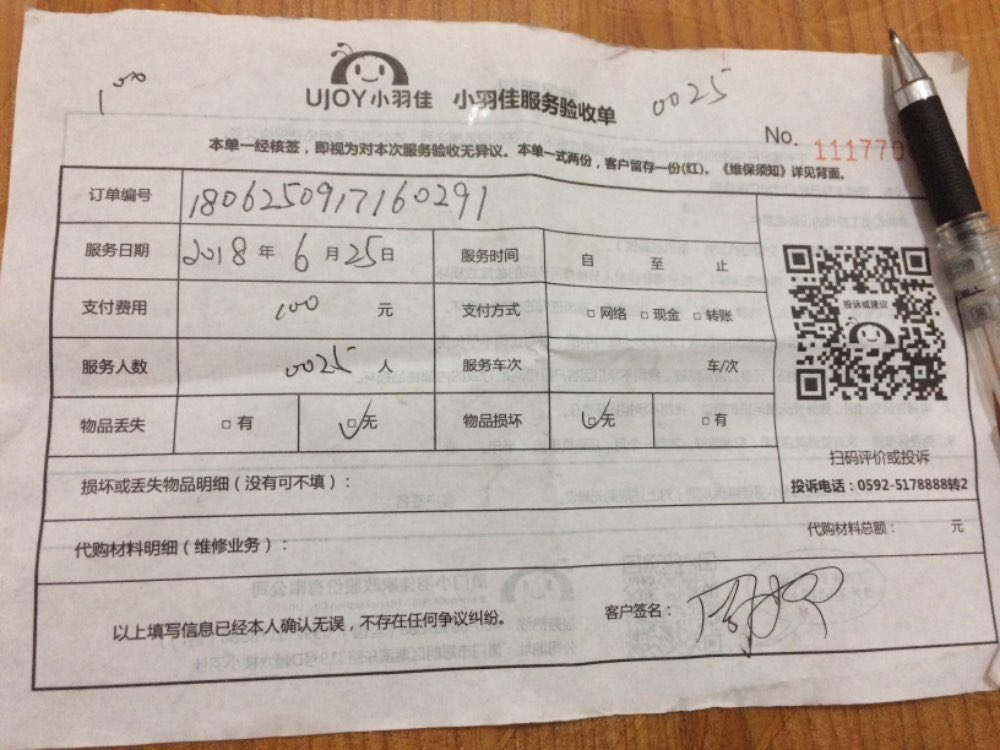 100
UJOY小羽佳 小羽佳服务验收单
0025
No. 111770
本单一经核签，即视为对本次服务验收无异议。本单一式两份，客户留存一份(红)。《维保须知》详见背面。
订单编号 1806250917160291
服务日期 2018 年 6 月 25 日 服务时间 自 至 止
支付费用 100 元 支付方式 □ 网络 □ 现金 □ 转账
服务人数 0025 人 服务车次 车/次
物品丢失 □ 有 ☑ 无 物品损坏 ☑ 无 □ 有
投诉或建议
扫码评价或投诉
投诉电话：0592-5178888转2
损坏或丢失物品明细（没有可不填）：
代购材料明细（维修业务）： 代购材料总额： 元
以上填写信息已经本人确认无误，不存在任何争议纠纷。 客户签名：